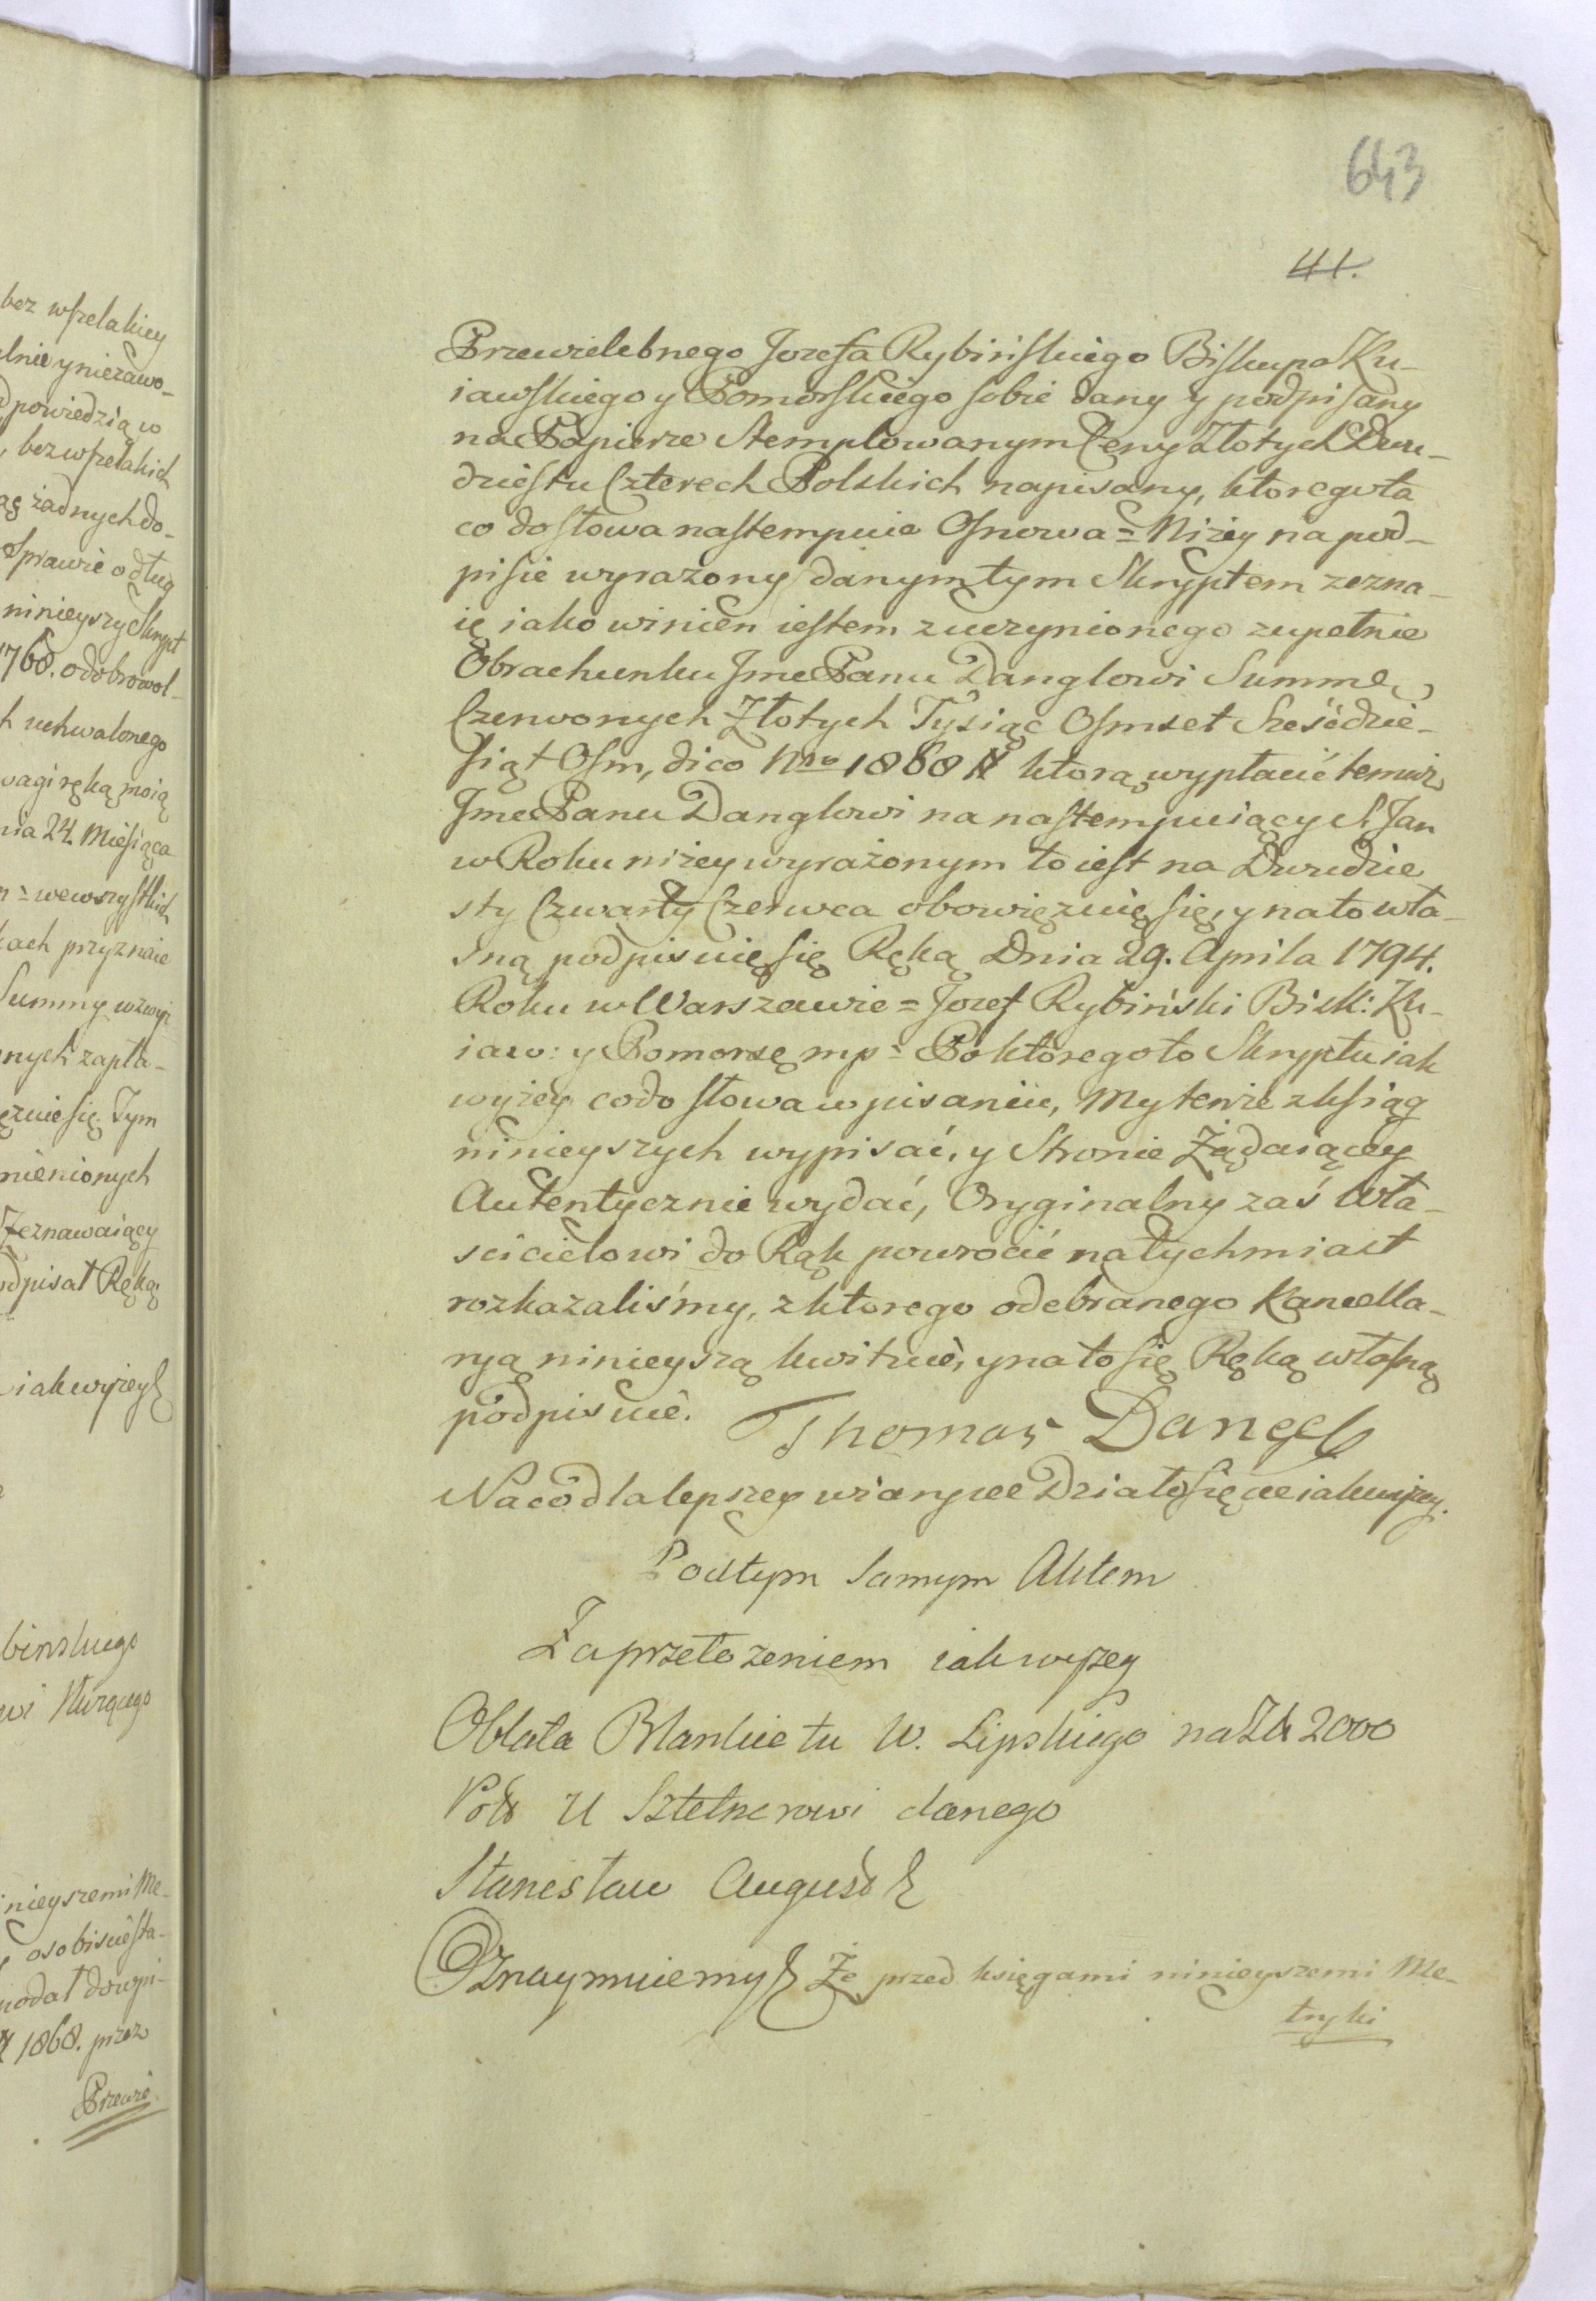 bez wszelakiey
elnie y niezawo-
dpowiedzią w
, bez wszelakich
żadnych do-
Sprawie o dług
ninieyszy Skrypt
1768. o dobrowol-
h uchwalonego
wagi ręką moią
nia 24. Miesiąca
= we wszystkich
kach przyznaie
Summy
nych zapła-
ęzuie się. Tym
mienionych
Zeznawaiący
odpisał Ręką
iak wyżey

binskiego

nieyszemi Me-
osobiscie sta-
podał do wpi-
# 1868. przez
Przewie-
643
41.
Przewielebnego Jozefa Rybińskiego Biskupa Ku-
iawskiego y Pomorskiego sobie dany y podpisany
na Papierze Stemplowanym Ceny Złotych Dwu-
dziestu Czterech Polskich napisany, ktorego ta
co do słowa nastempuie Osnowa = Niżey na pod-
pisie wyrażony danym tym Skryptem zezna-
ię iako winien iestem z uczynionego zupełnie
Obrachunku Jme Panu Danglowi Summę
Czerwonych Złotych Tysiąc Osmset Sześćdzie-
siąt Osm, dico Nro 1868 # ktorą wypłacić temuż
Jme Panu Danglowi na nastempuiący S. Jan
w Roku niżey wyrażonym to iest na Dwudzie
sty Czwarty Czerwca obowięzuię się, y na to wła-
sną podpisuię się Ręką Dnia 29. Aprila 1794.
Roku w Warszawie = Jozef Rybiński Bisk: Ku-
iaw: y Pomorsę mp = Po ktorego to Skryptu iak
wyżey co do słowa wpisaniu, My tenże z ksiąg
ninieyszych wypisać, y Stronie Żądaiącey
Autentycznie wydać, Oryginalny zaś Wła-
scicielowi do Rąk powrocić natychmiast
rozkazaliśmy, z ktorego odebranego Kancella-
ryą ninieyszą kwituie, y na to się Ręką własną
podpisuie. Thomas Dangel
Na co dla lepszey wiary etc Działo się etc iak wyżey.
Pod tym samym Aktem
Za przełożeniem iak wyżey
Oblata Blankietu W. Lipskiego na Zł 2000
Pols U Sztelnerowi danego
Stanisław August
Oznaymuiemy Że przed księgami ninieyszemi Me-
tryki